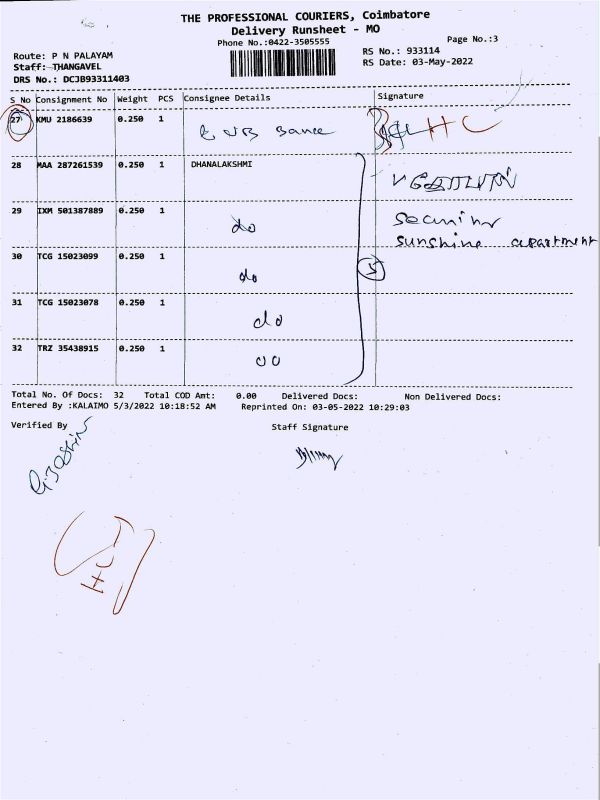 THE PROFESSIONAL COURIERS, Coimbatore
Delivery Runsheet - MO
Phone No.:0422-3505555
Page No.:3
Route: P N PALAYAM
RS No.: 933114
Staff: THANGAVEL
RS Date: 03-May-2022
DRS No.: DCJB93311403
S No Consignment No Weight PCS Consignee Details Signature
27 KMU 2186639 0.250 1 HC
28 MAA 287261539 0.250 1 DHANALAKSHMI
29 IXM 501387889 0.250 1 do
sunshine apartment
30 TCG 15023099 0.250 1 do
5
31 TCG 15023078 0.250 1 do
32 TRZ 35438915 0.250 1
Total No. Of Docs: 32 Total COD Amt: 0.00 Delivered Docs: Non Delivered Docs:
Entered By :KALAIMO 5/3/2022 10:18:52 AM Reprinted On: 03-05-2022 10:29:03
Verified By Staff Signature